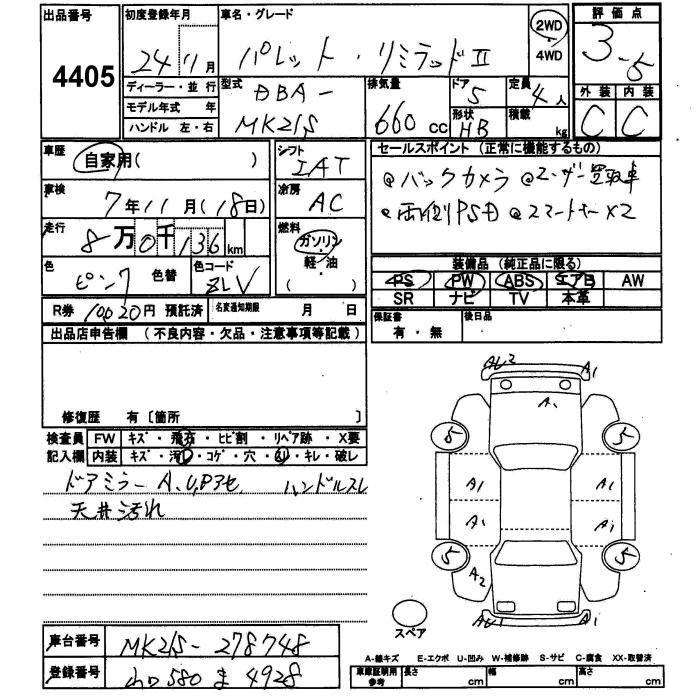 出品番号
4405
初度登録年月
24 11月
車名・グレード
パレット・リミテッドⅡ
2WD
4WD
評価点
3.5
ディーラー・並行
モデル年式 年
ハンドル 左・右
型式
DBA-
MK21S
排気量
660cc
ドア
5
形状
HB
定員
4人
積載
kg
外装 内装
C C
車歴
自家用( )
シフト
IAT
セールスポイント (正常に機能するもの)
◎バックカメラ ◎ユーザー買取車
◎両側PSD ◎スマートキーX2
車検
7年11月(18日)
冷房
AC
走行
8万0千136km
燃料
ガソリン
軽・油
( )
色
ピンク
色替
色コード
ZLV
装備品 (純正品に限る)
PS PW ABS エアB AW
SR ナビ TV 本革
R券 10020円 預託済
名変通知期限 月 日
保証書
有・無
後日品
出品店申告欄 (不良内容・欠品・注意事項等記載)
修復歴 有〔箇所 〕
検査員
記入欄
FW キズ・飛石・ヒビ割・リペア跡・X要
内装 キズ・汚レ・コゲ・穴・スレ・キレ・破レ
ドアミラーA,U,Pアセ ハンドルスレ
天井汚れ
A1
A1
5 5
A1 A1
A1 A1
5 5
A2
A1
スペア
車台番号
MK21S-278748
登録番号
580 ま 4928
A-線キズ E-エクボ U-凹み W-補修跡 S-サビ C-腐食 XX-取替済
車庫証明用
参考
長さ cm
幅 cm
高さ cm